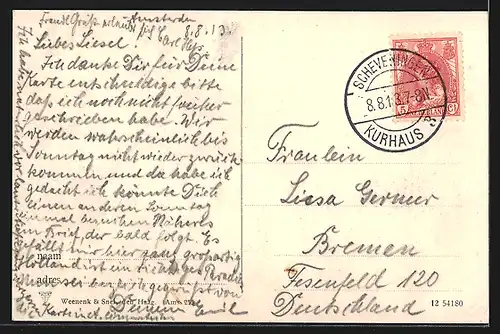 Amsterdam
8.8.13.
Liebes Liesel!
Ich danke Dir für Deine
Karte entschuldige bitte
daß ich noch nicht früher
geschrieben habe. Wir
werden wahrscheinlich bis
Sonntag nicht wieder zurück
kommen und da habe ich
gedacht ich könnte Dich
einen anderen Sonntag
einmal besuchen Näheres
im Brief der bald folgt. Es
gefällt mir hier ganz großartig
Holland ist ein
naam
adres
gegrüßt von
Deinem Emil
Weenenk & Snel, den Haag
SCHEVENINGEN
8.8.13.7-8N.
KURHAUS
3
5
Fräulein
Liesa Germer
Bremen
Fesenfeld 120
Deutschland
12 54180